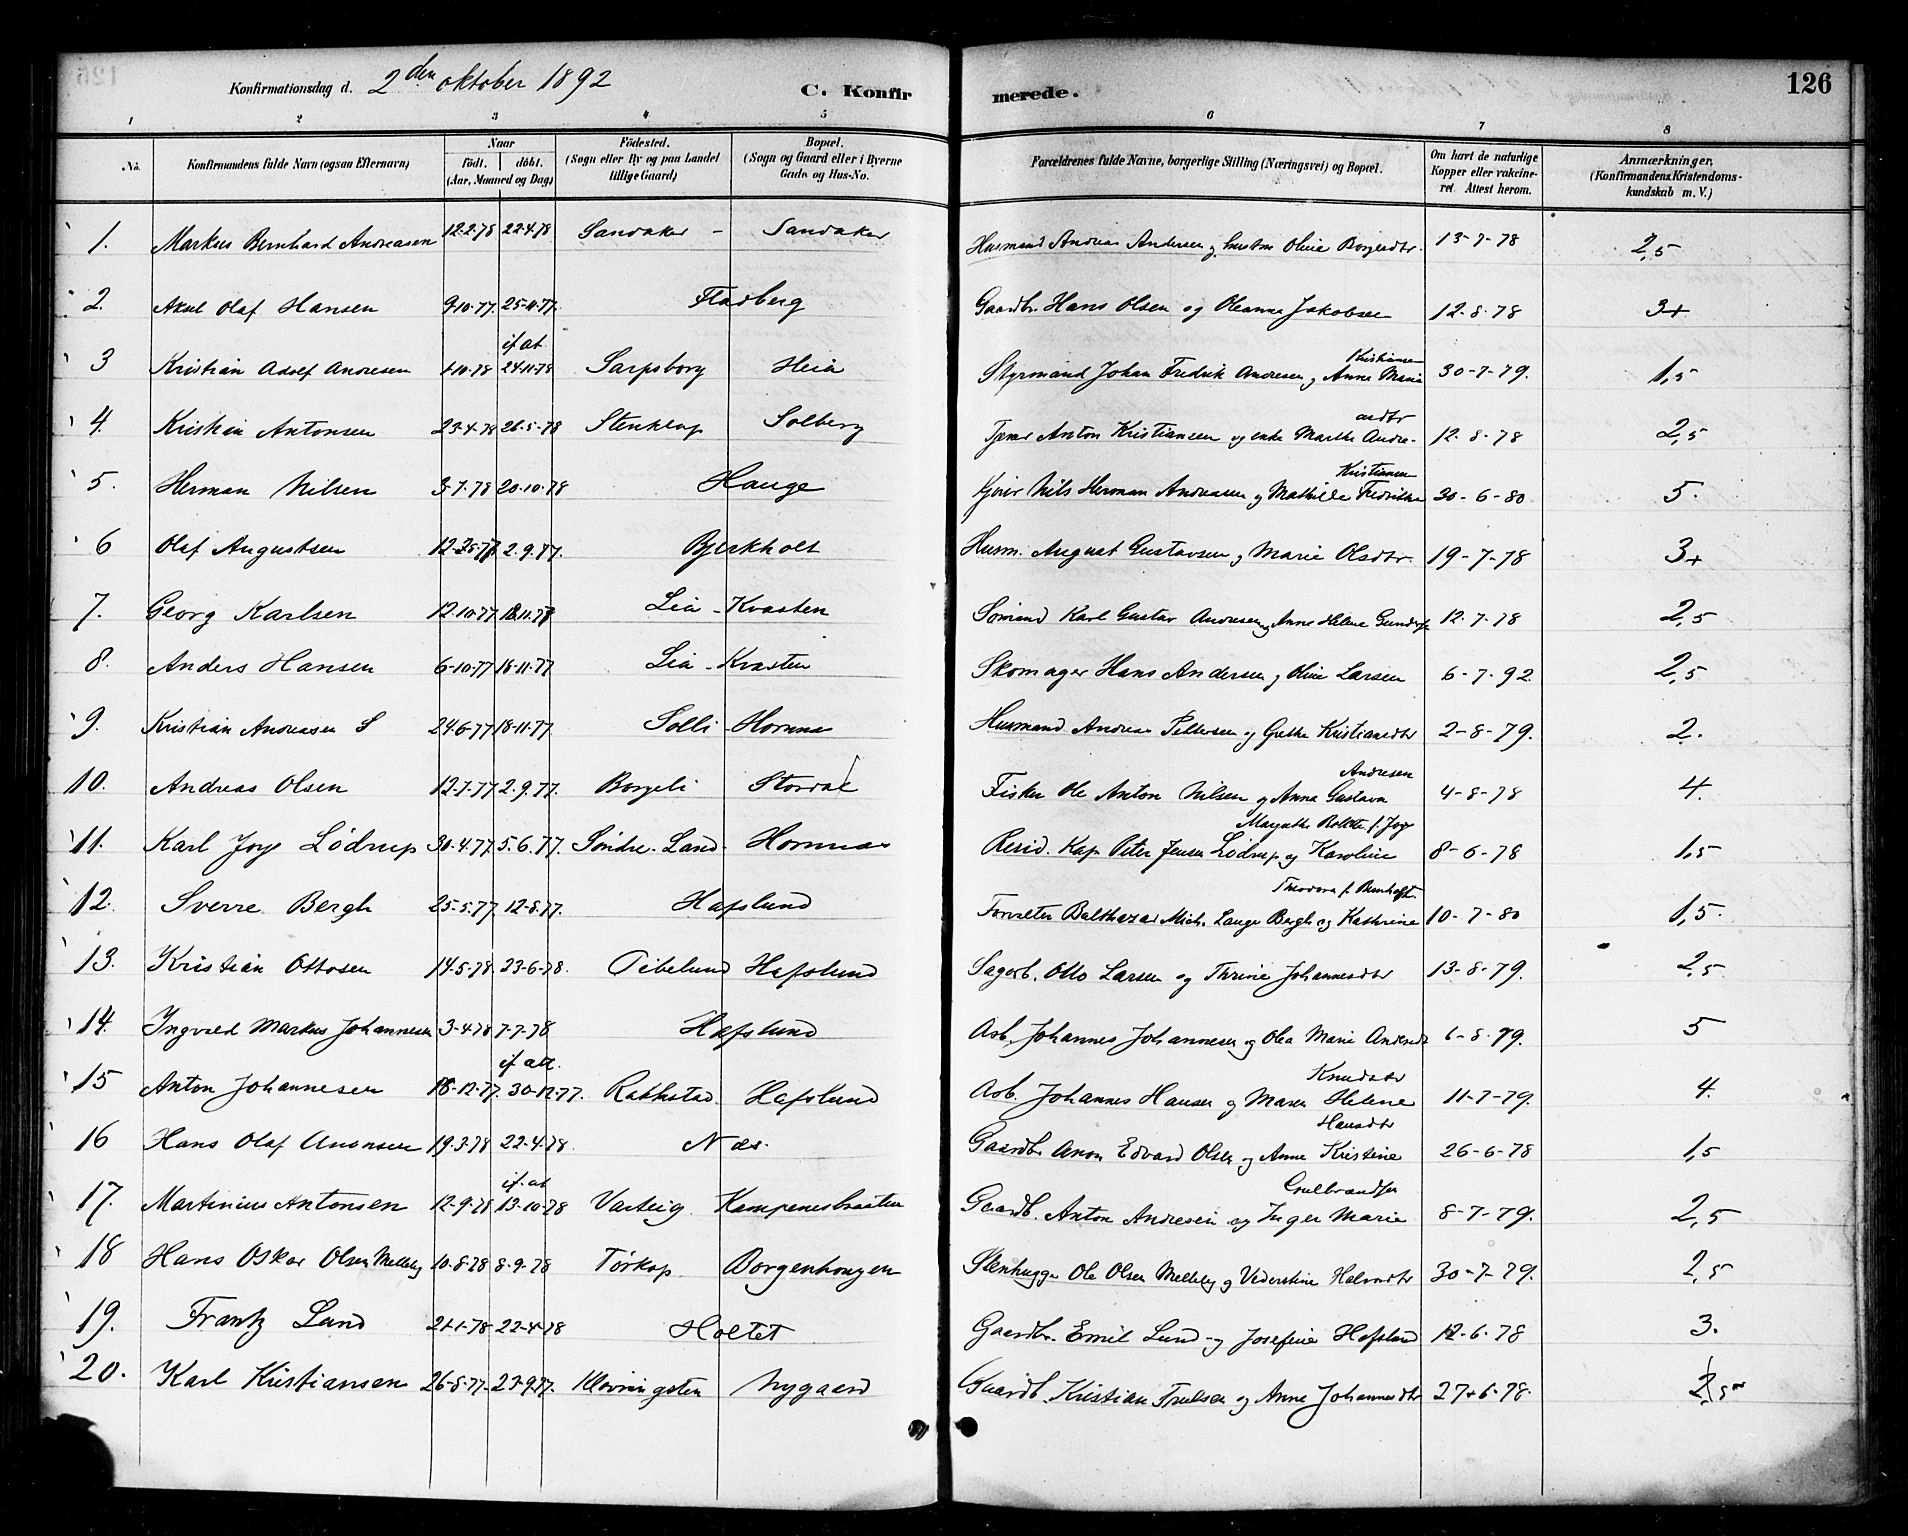 126
Konfirmationsdag d. 2den oktober 1892
C. Konfirmerede.
1 2 3 4 5 6 7 8
No. Konfirmandens fulde Navn (ogsaa Efternavn) Naar födt. döbt. (Aar, Maaned og Dag) Födested. (Sogn eller By og paa Landet tillige Gaard) Bopæl. (Sogn og Gaard eller i Byerne Gade og Hus-No. Forældrenes fulde Navne, borgerlige Stilling (Næringsvei) og Bopæl. Om havt de naturlige Kopper eller vakcineret. Attest herom. Anmærkninger, (Konfirmandens Kristendomskundskab m. V.)
1. Markus Bernhard Andreasen 12.2.78 22.4.78 Sandaker - Sandaker Husmand Andreas Andersen og hustru Olivia Borgerdtr. 13-7-78 2,5
2. Aksel Olaf Hansen 9.10.77. 25.11.77. Fladberg Gaardbr. Hans Olsen og Oleanne Jakobsen 12.8.78 3+
3 Kristian Adolf Andresen 1.10.78 if at 24.11.78 Sarpsborg Heia Styrmand Johan Fredrik Andresen og Anne Maria Kristiansen 30-7-79. 1,5
4. Kristian Antonsen 23.4.78 26.5.78 Stenkleep Solberg Anton Kristiansen og enke Marthe Andreasdtr 12.8-78 2,5
5. Herman Nilsen 3.7.78 20.10.78 Hauge Nils Herman Andreasen og Mathilde Fredrikke Kristiansen 30-6-80 5.
6 Olaf Augustsen 2.9.77. Bjerkholt Husm. August Gustavsen og Marie Olsdtr. 19-7-78 3+
7. Georg Karlsen 12.10.77 18.11.77 Lia - Kvasten Sömand Karl Gustav Andresen og Anne Helene 12.7-78 2,5
8. Anders Hansen 6-10.77 18.11.77 Lia - Kvasten Skomager Hans Andersen og Oline Larsen 6-7-92. 2,5
9. Kristian Andreasen S 24.6.77 18-11.77 Solli - Hornnes Husmand Andreas Pettersen og Grethe Kristiansdtr 2-8-79. 2.
10. Andreas Olsen 12.7.77 2.9.77. Borgeli Stordal Fisker Ole Anton Nilsen og Anna Gustava Andresen 4-8-78 4.
11. Karl Joys Lödrup 30.4.77. 5.6.77. Söndre-Land- Hornnes Resid. Kap. Peter Jensen Lödrup og Karoline Margrethe Boltthe f. Joys 8-6-78 1,5
12. Sverre Bergh 25.5.77. 12-8.77. Hafslund Forvalter Balthazar Mich. Lange Bergh og Kathrine Theodora f. Bernhoft. 10-7-80 1,5.
13. Kristian Ottosen 14.5.78. 23-6-78. Tibelund Hafslund Sagarb. Otto Larsen og Thrine Johannesdtr 13-8-79. 2,5
14. Ingvald Markus Johannesen 3-4.78 7-7-78 Hafslund Arb. Johannes Johannesen og Olea Marie Andersdtr 6-8.79. 5
15 Anton Johannesen 18-12-77. if att. 30-12-77. Rakkestad Hafslund Arb. Johannes Hansen og Maren Helene Knudsdtr 11-7-79. 4.
16 Hans Olaf Anonsen 19.3.78 22.4.78. Næs. Gaardbr. Anon Edvard Olsen og Anne Kristine Hansdtr 26-6-78 1,5
17. Martinius Antonsen 12-9.78 if. at 13-10-78 Varteig. Kampenesbraaten Gaardb. Anton Andresen og Inger Marie Gulbrandsen 8-7-79. 2,5
18 Hans Oskar Olsen Melleby 10.8.78 8.9.78 Torkop. Borgenhougen Stenhugger Ole Olsen Melleby og Halvordtr 30-7-79. 2,5
19. Frantz Lund 21.1.78. 22-4-78 Holtet Gaardbr. Emil Lund og Josefine Hafslund 12-6.78 3.
20. Karl Kristiansen 26-8.77. 23.9.77. Klovningsten Nygaard Gaardb. Kristian Trulsen og Anne Johannesdtr 27.6.78. 2,5